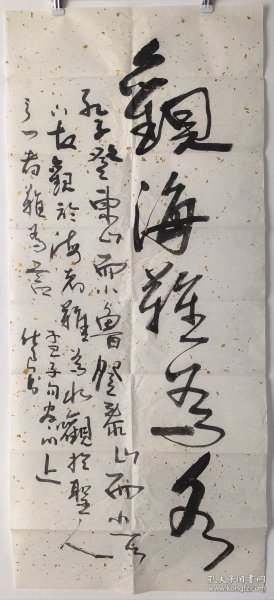 觀海難為水
孔子登東山而小魯登泰山而小天
下故觀於海者難為水觀於聖人
之門者難為言
孟子句
孔夫子旧书网